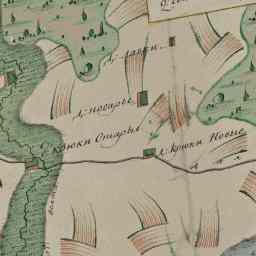 д: лавки
д: поварье
Крюки Старые
д: Крюки Новые